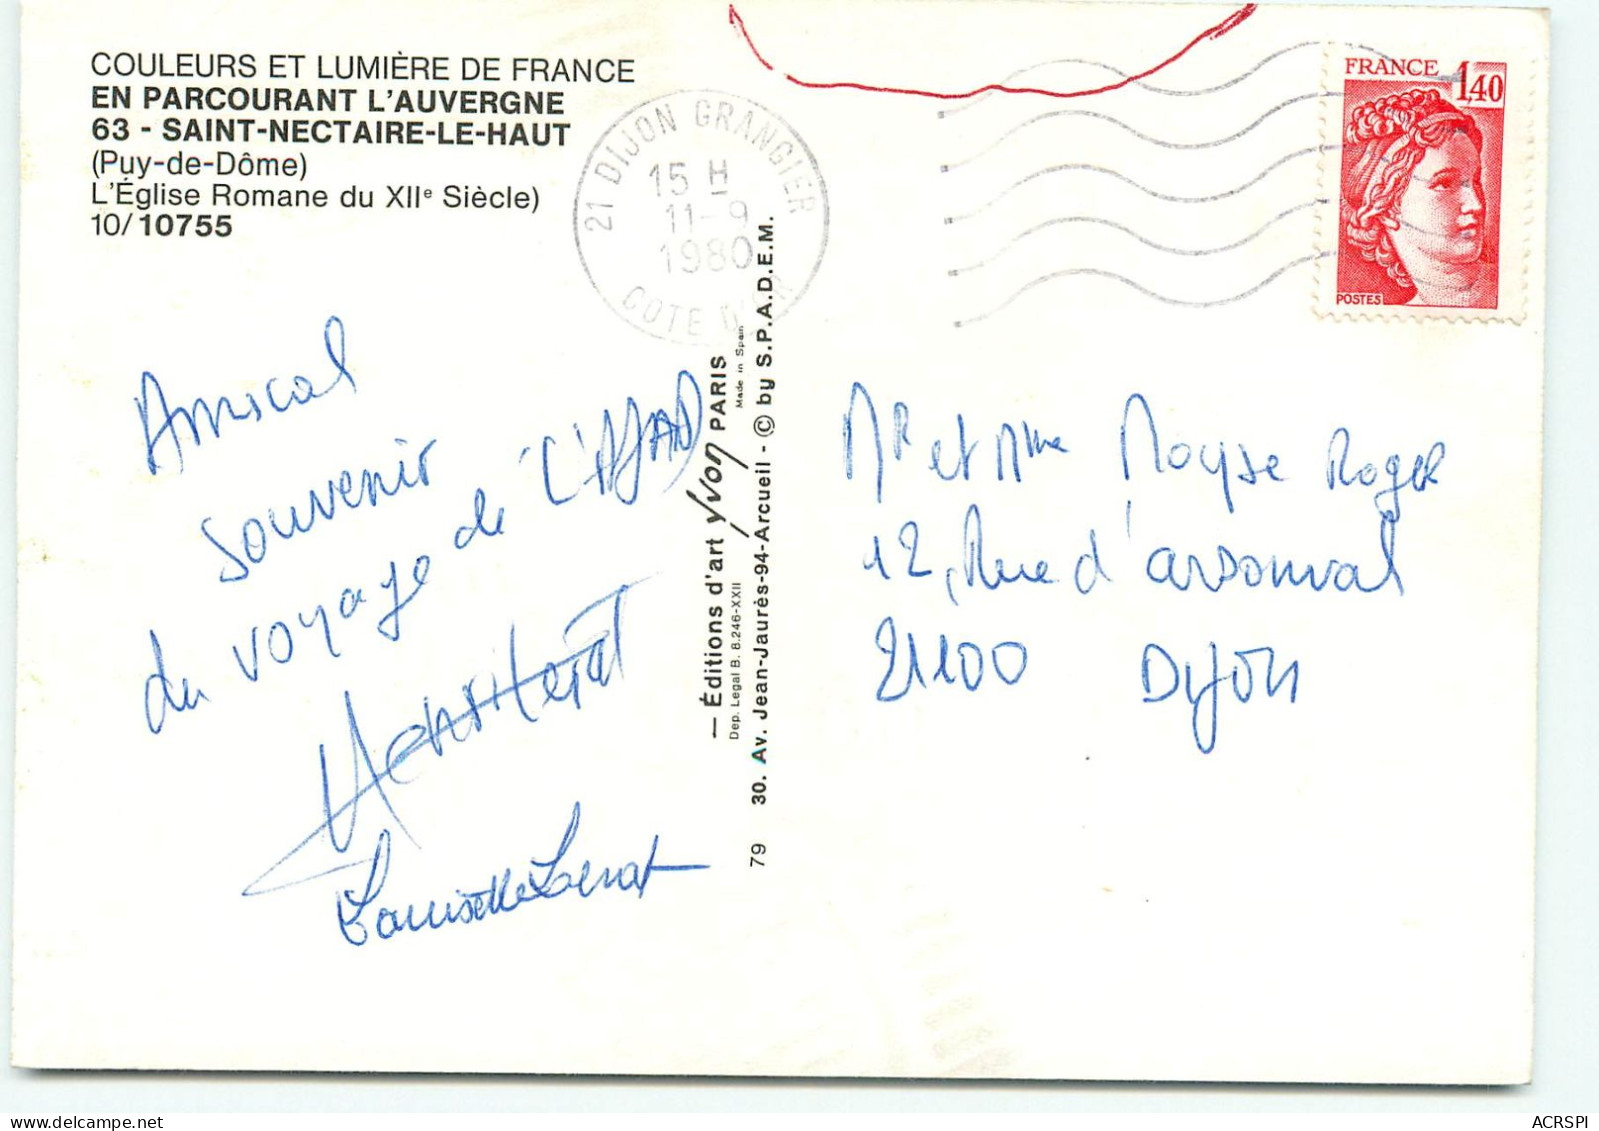 COULEURS ET LUMIÈRE DE FRANCE
EN PARCOURANT L'AUVERGNE
63 - SAINT-NECTAIRE-LE-HAUT
(Puy-de-Dôme)
L'Église Romane du XIIe Siècle)
10/10755
21 DIJON GRANGIER
15 H
11-9
1980
COTE D'OR
FRANCE 1,40
POSTES
Amical
souvenir
du voyage de L'AJAD
Louisette
— Éditions d'art yvon PARIS
Dep. Legal B. 8.246-XXII
Made in Spain
79 30. Av. Jean-Jaurès-94-Arcueil - © by S.P.A.D.E.M.
Mr et Mme Moyse Roger
12, Rue d'arsonval
21100 Dijon
ACRSPI